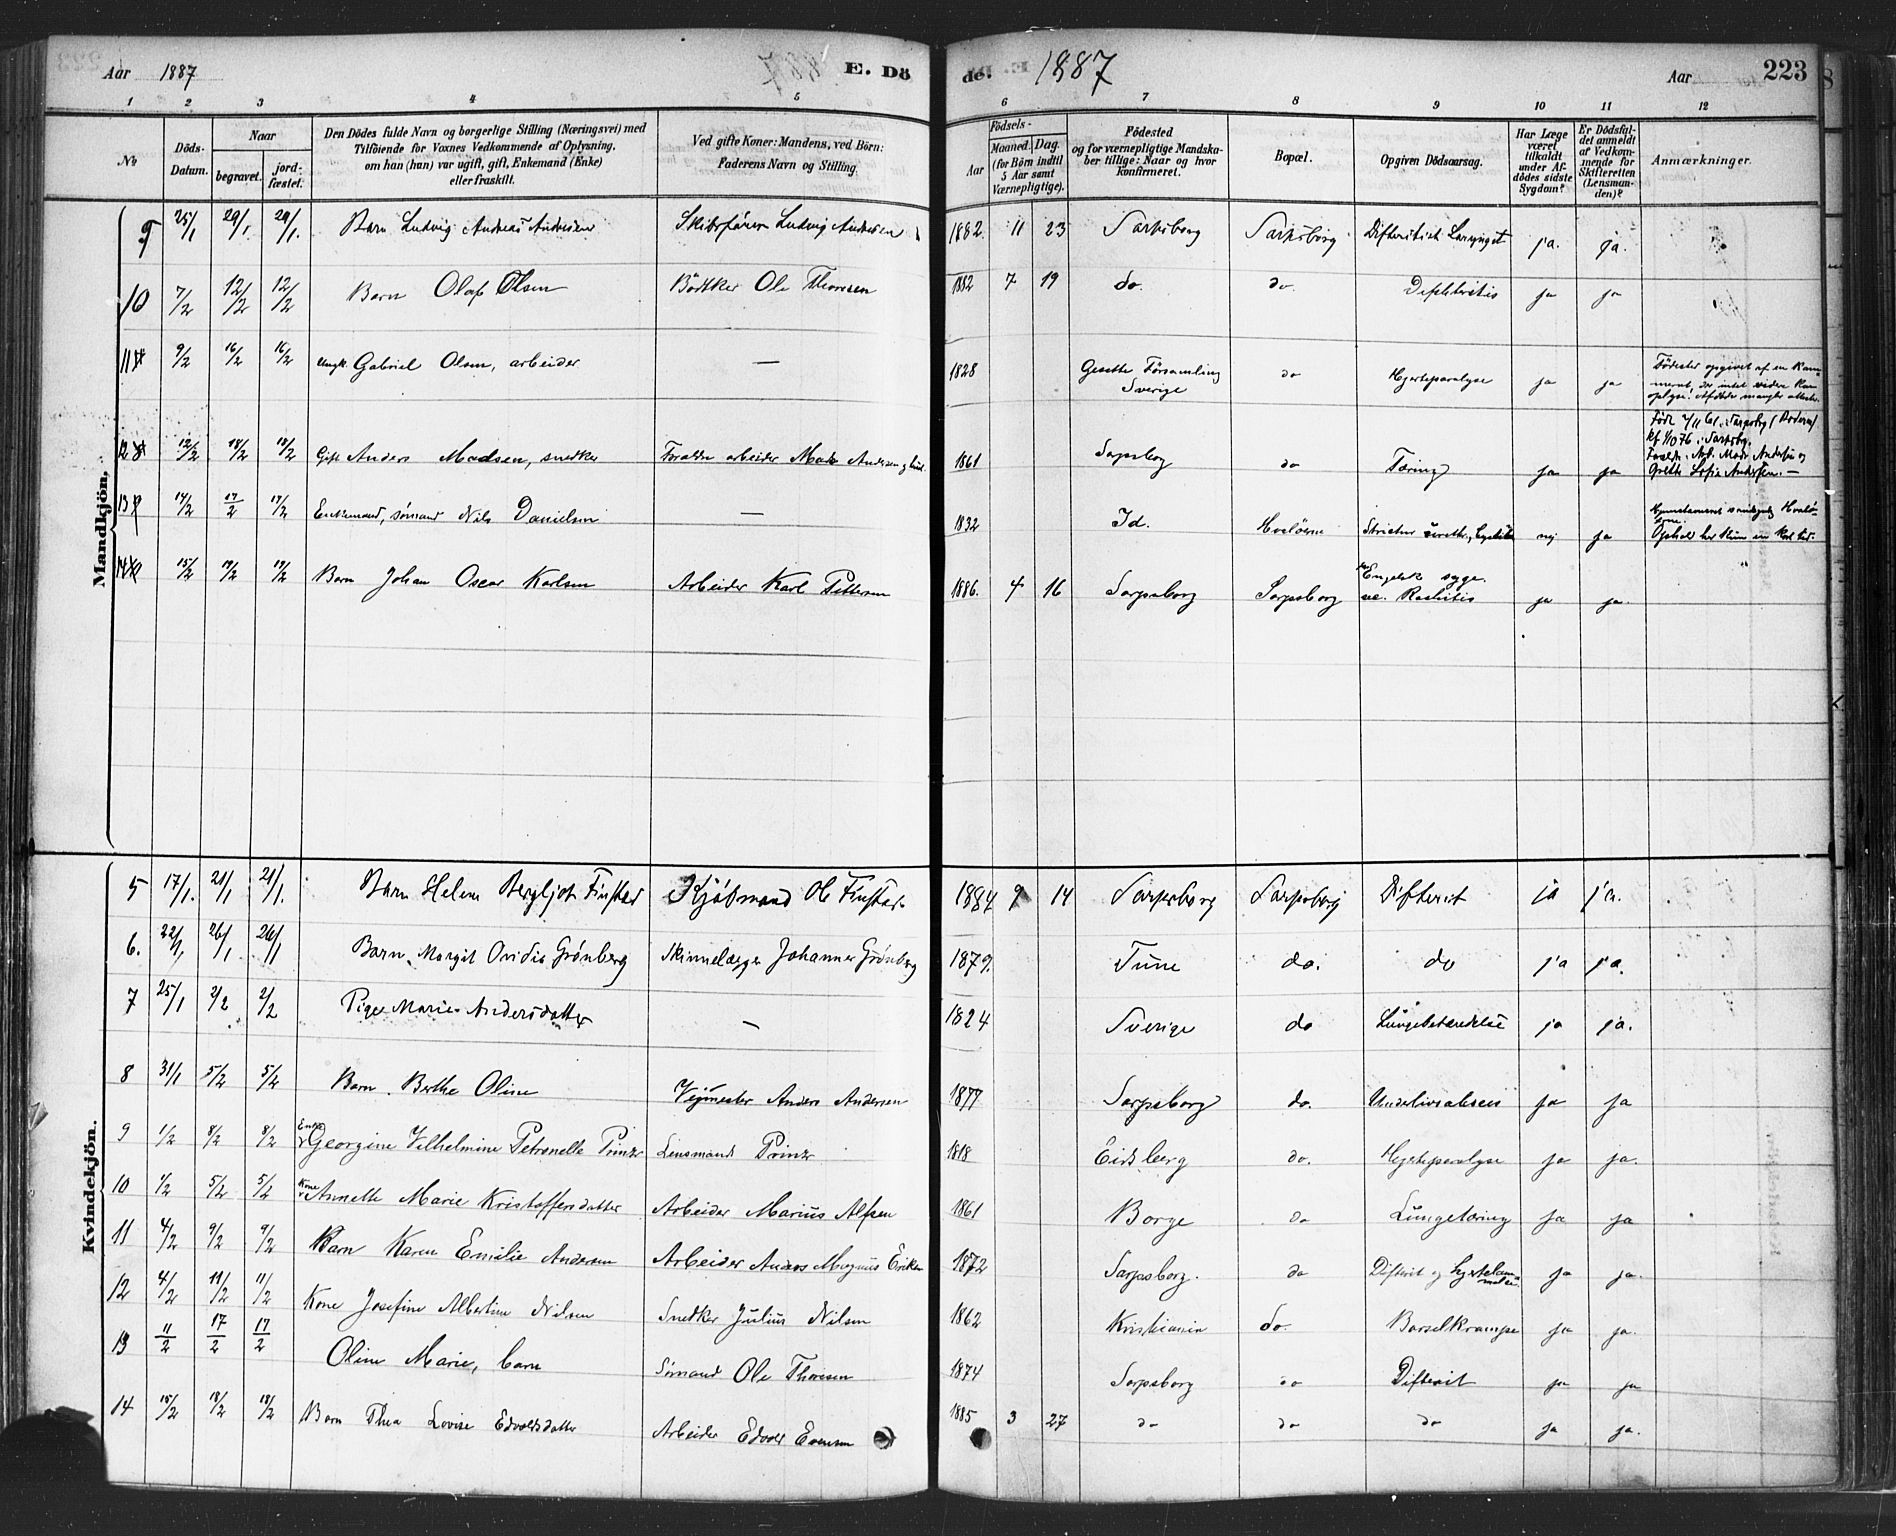 Aar 1887 E. Dö
de. 1887 Aar 223
1 2 3 4 5 6 7 8 9 10 11 12
No
Döds-Datum.
Naar
begravet.
jord-fæstet.
Den Dödes fulde Navn og borgerlige Stilling (Næringsvei) med
Tilföiende for Voxnes Vedkommende af Oplysning,
om han (hun) var ugift, gift, Enkemand (Enke)
eller fraskilt.
Ved gifte Koner: Mandens, ved Börn:
Faderens Navn og Stilling.
Födsels-
Aar
Maaned. Dag.
(for Börn indtil
5 Aar samt
Værnepligtige).
Födested
og for værnepligtige Mandska-
ber tillige: Naar og hvor
konfirmeret.
Bopæl.
Opgiven Dödsaarsag.
Har Læge
været
tilkaldt
under Af-
dödes sidste
Sygdom?
Er Dödsfal-
det anmeldt
af Vedkom-
mende for
Skifteretten
(Lensman-
den)?
Anmærkninger.
Mandkjön.
9 25/1 29/1. 29/1. Barn Ludvig Andreas Andresen Skibsförer Ludvig Andresen 1882. 11 23 Sarpsborg Sarpsborg Difteritisk Laryngit ja. ja.
10 7/2 12/2 12/2 Barn Olaf Olsen Bödtker Ole Thoresen 1882 7 19 do. do. Difhteritis ja ja
11 9/2 16/2 16/2 Ungk. Gabriel Olsen, arbeider — 1828 Gesette Församling Sverige do Hjerteparalyse ja ja
12 12/2 18/2 18/2 Gift Anders Madsen, snedker Forældre arbeider Mads Andersen og 1861 Sarpsborg do Tæring ja ja
Grethe Sofie Andersen. —
13 14/2 17/2 17/2 Enkemand, sömand Nils Danielsen — 1832 Id. Hvalöerne Strictur urethr., nej ja
14 15/2 19/2 19/2 Barn Johan Oscar Karlsen Arbeider Karl Pettersen 1886. 4 16 Sarpsborg Sarpsborg Engelsk syge. Rachitis ja ja.
Kvindekjön.
5 17/1. 21/1 21/1. Barn Helene Bergljot Finstad Kjöbmand Ole Finstad 1884 9 14 Sarpsborg Sarpsborg Difterit ja ja.
6. 22/1 26/1 26/1 Barn Margit Ovidia Grønberg Skinnelægger Johannes Grønberg 1879. Tune do. do ja ja.
7 25/1 2/2 2/2 Pige Marie Andersdatter — 1824 Sverige do Lungebetændelse ja ja.
8 31/1 5/2 5/2 Barn. Berthe Oline Vejmester Anders Andersen 1877 Sarpsborg do. Underlivsabsces ja ja
9 1/2 8/2 8/2 Enke Georgine Vilhelmine Petronelle Prinz Lensmand Prinz 1818 Eidsberg do. Hjerteparalyse ja ja.
10 1/2 5/2 5/2 Kone Annette Marie Kristoffersdatter Arbeider Marius Alfsen 1861 Borge do Lungetæring ja ja
11 4/2 9/2 9/2 Barn Karen Emilie Andersen Arbeider Anders Magnus Eriksen 1872 Sarpsborg. do Difterit og Hjertelammelse ja ja.
12 4/2 11/2 11/2 Kone Josefine Albertine Nilsen Snedker Julius Nilsen 1862 Kristiania do. Barselkrampe ja ja.
13 11/2 17/2 17/2 Oline Marie, barn Sömand Ole Thoresen 1874 Sarpsborg do Difterit ja ja
14 15/2 18/2 18/2 Barn Thea Lovise Edvardsdatter Arbeider Edvard Evensen 1885 3 27 do do do ja ja.